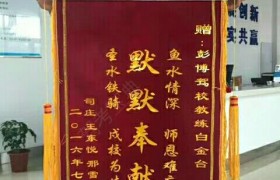 赠：彭博驾校教练白金台
鱼水情深 师恩难
默默奉献
圣水铁骑 成校为
司庄王车悦那雪
二〇一六年七
新创
实赢